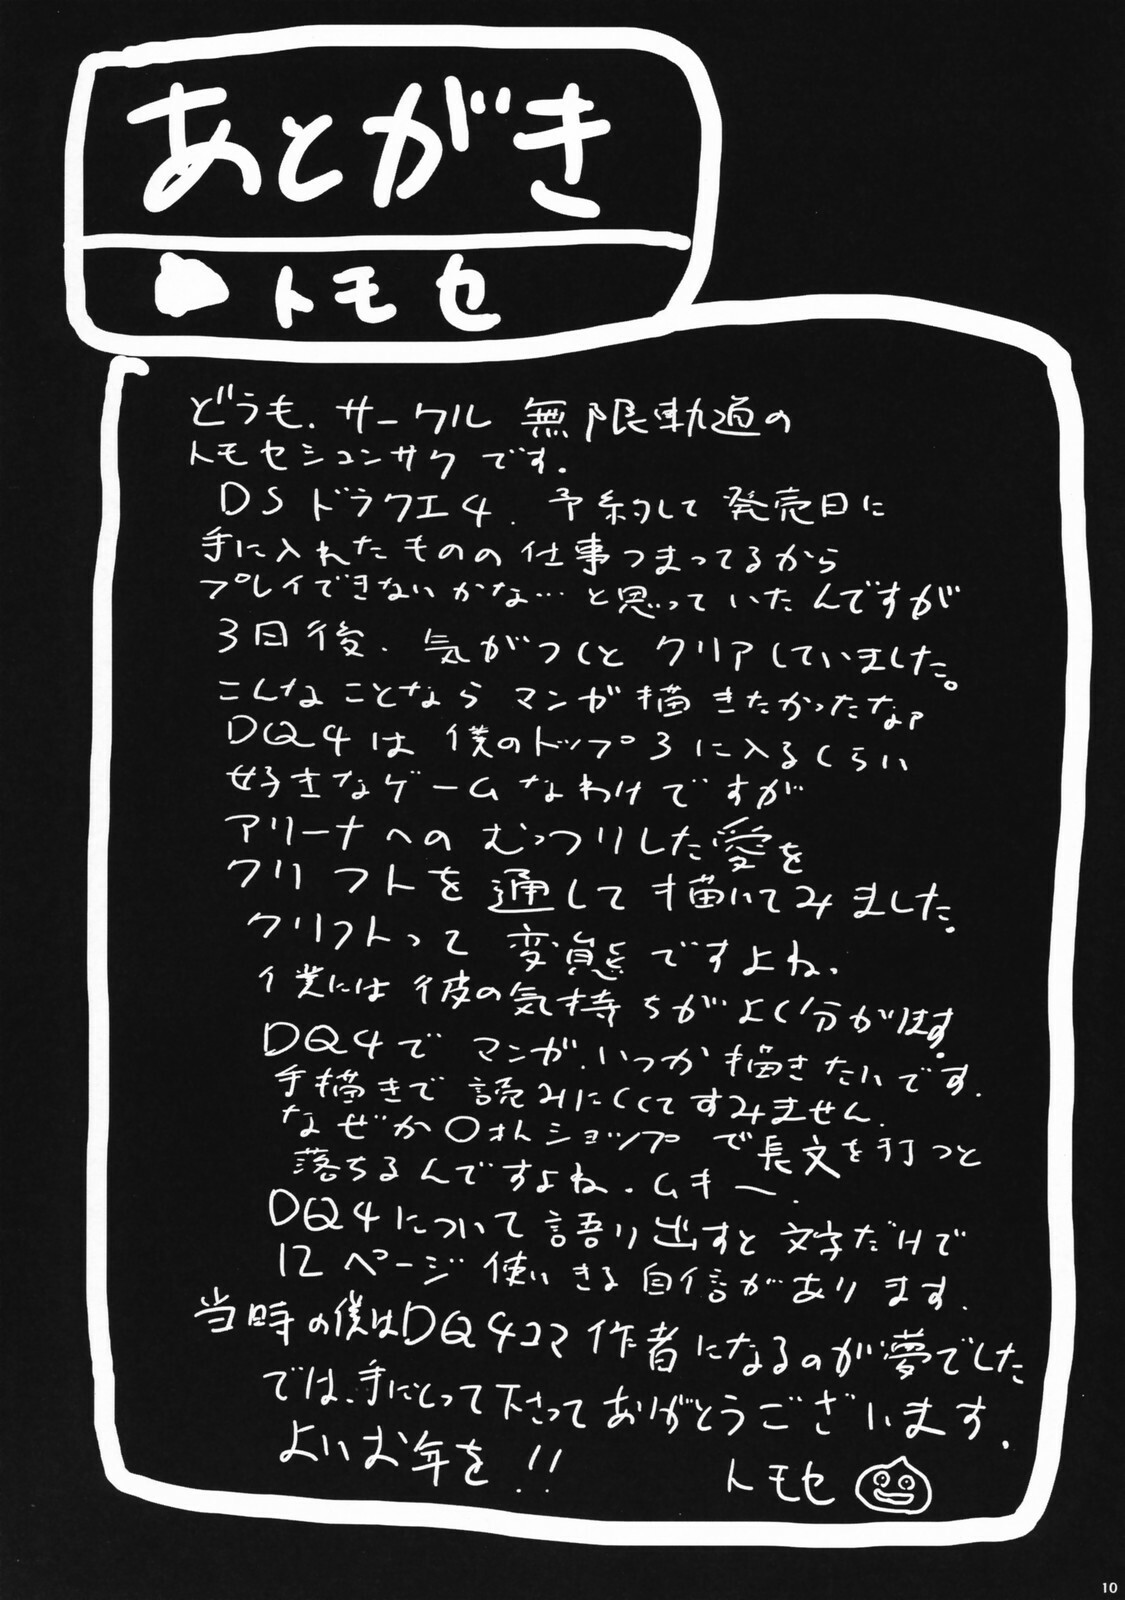 あとがき
トモセ
どうも、サークル 無限軌道の
トモセシュンサクです。
DSドラクエ4、予約して発売日に
手に入れたものの仕事つまってるから
プレイできないかな…と思っていたんですが
3日後、気がつくとクリアしていました。
こんなことならマンガ描きたかったなァ
DQ4は僕のトップ3に入るくらい
好きなゲームなわけですが
アリーナへのむっつりした愛を
クリフトを通して描いてみました。
クリフトって変態ですよね、
僕には彼の気持ちがよく分かります。
DQ4でマンガ、いつか描きたいです。
手描きで読みにくくてすみません。
なぜか〇ォトショップで長文を打つと
落ちるんですよね。ムキー。
DQ4について語り出すと文字だけで
12ページ使いきる自信があります。
当時の僕はDQ4コマ作者になるのが夢でした
では、手にとって下さってありがとうございます。
よいお年を!!
トモセ
10